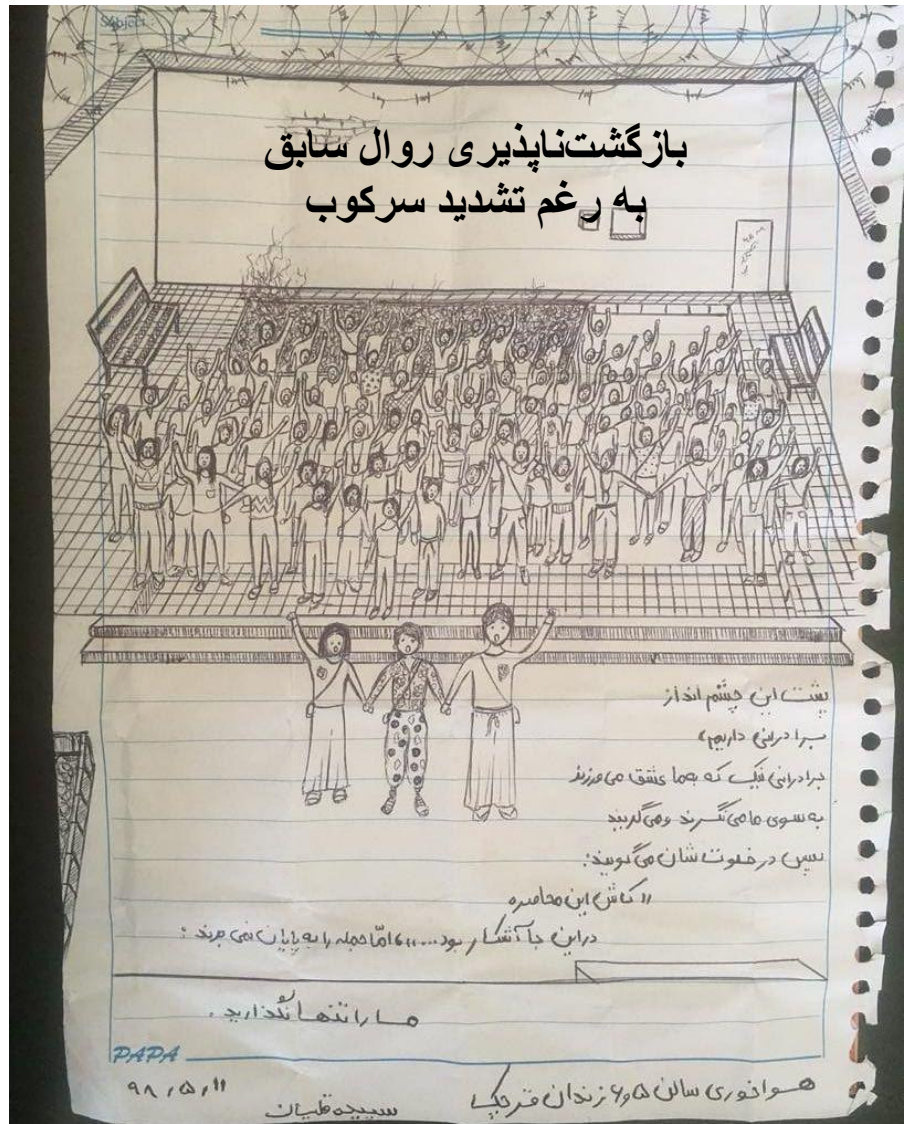 Subject:
بازگشت‌ناپذیری روال سابق
به رغم تشدید سرکوب
پشت این چشم انداز
برادرانی داریم،
برادرانی نیک که بما عشق می ورزند
به سوی ما می نگرند و می گریند
سپس در خلوت شان می گویند:
"کاش این محاصره
در این جا آشکار بود...."، امّا جمله را به پایان نمی برند:
ما را تنها نگذارید.
PAPA
هواخوری سالن ۵ و ۶ زندان قرچک
سپیده قلیان
۹۸،۵،۱۱